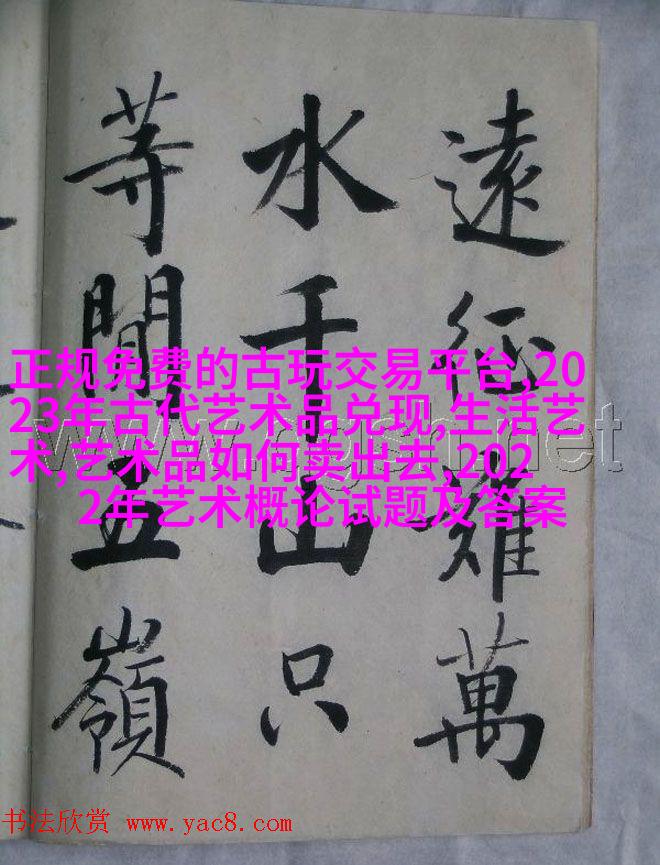 遠征難萬
水千山只
等閒五嶺
正规免费的古玩交易平台,20
23年古代艺术品兑现,生活艺
术,艺术品如何卖出去,202
2年艺术概论试题及答案
书法欣赏 www.yac8.com